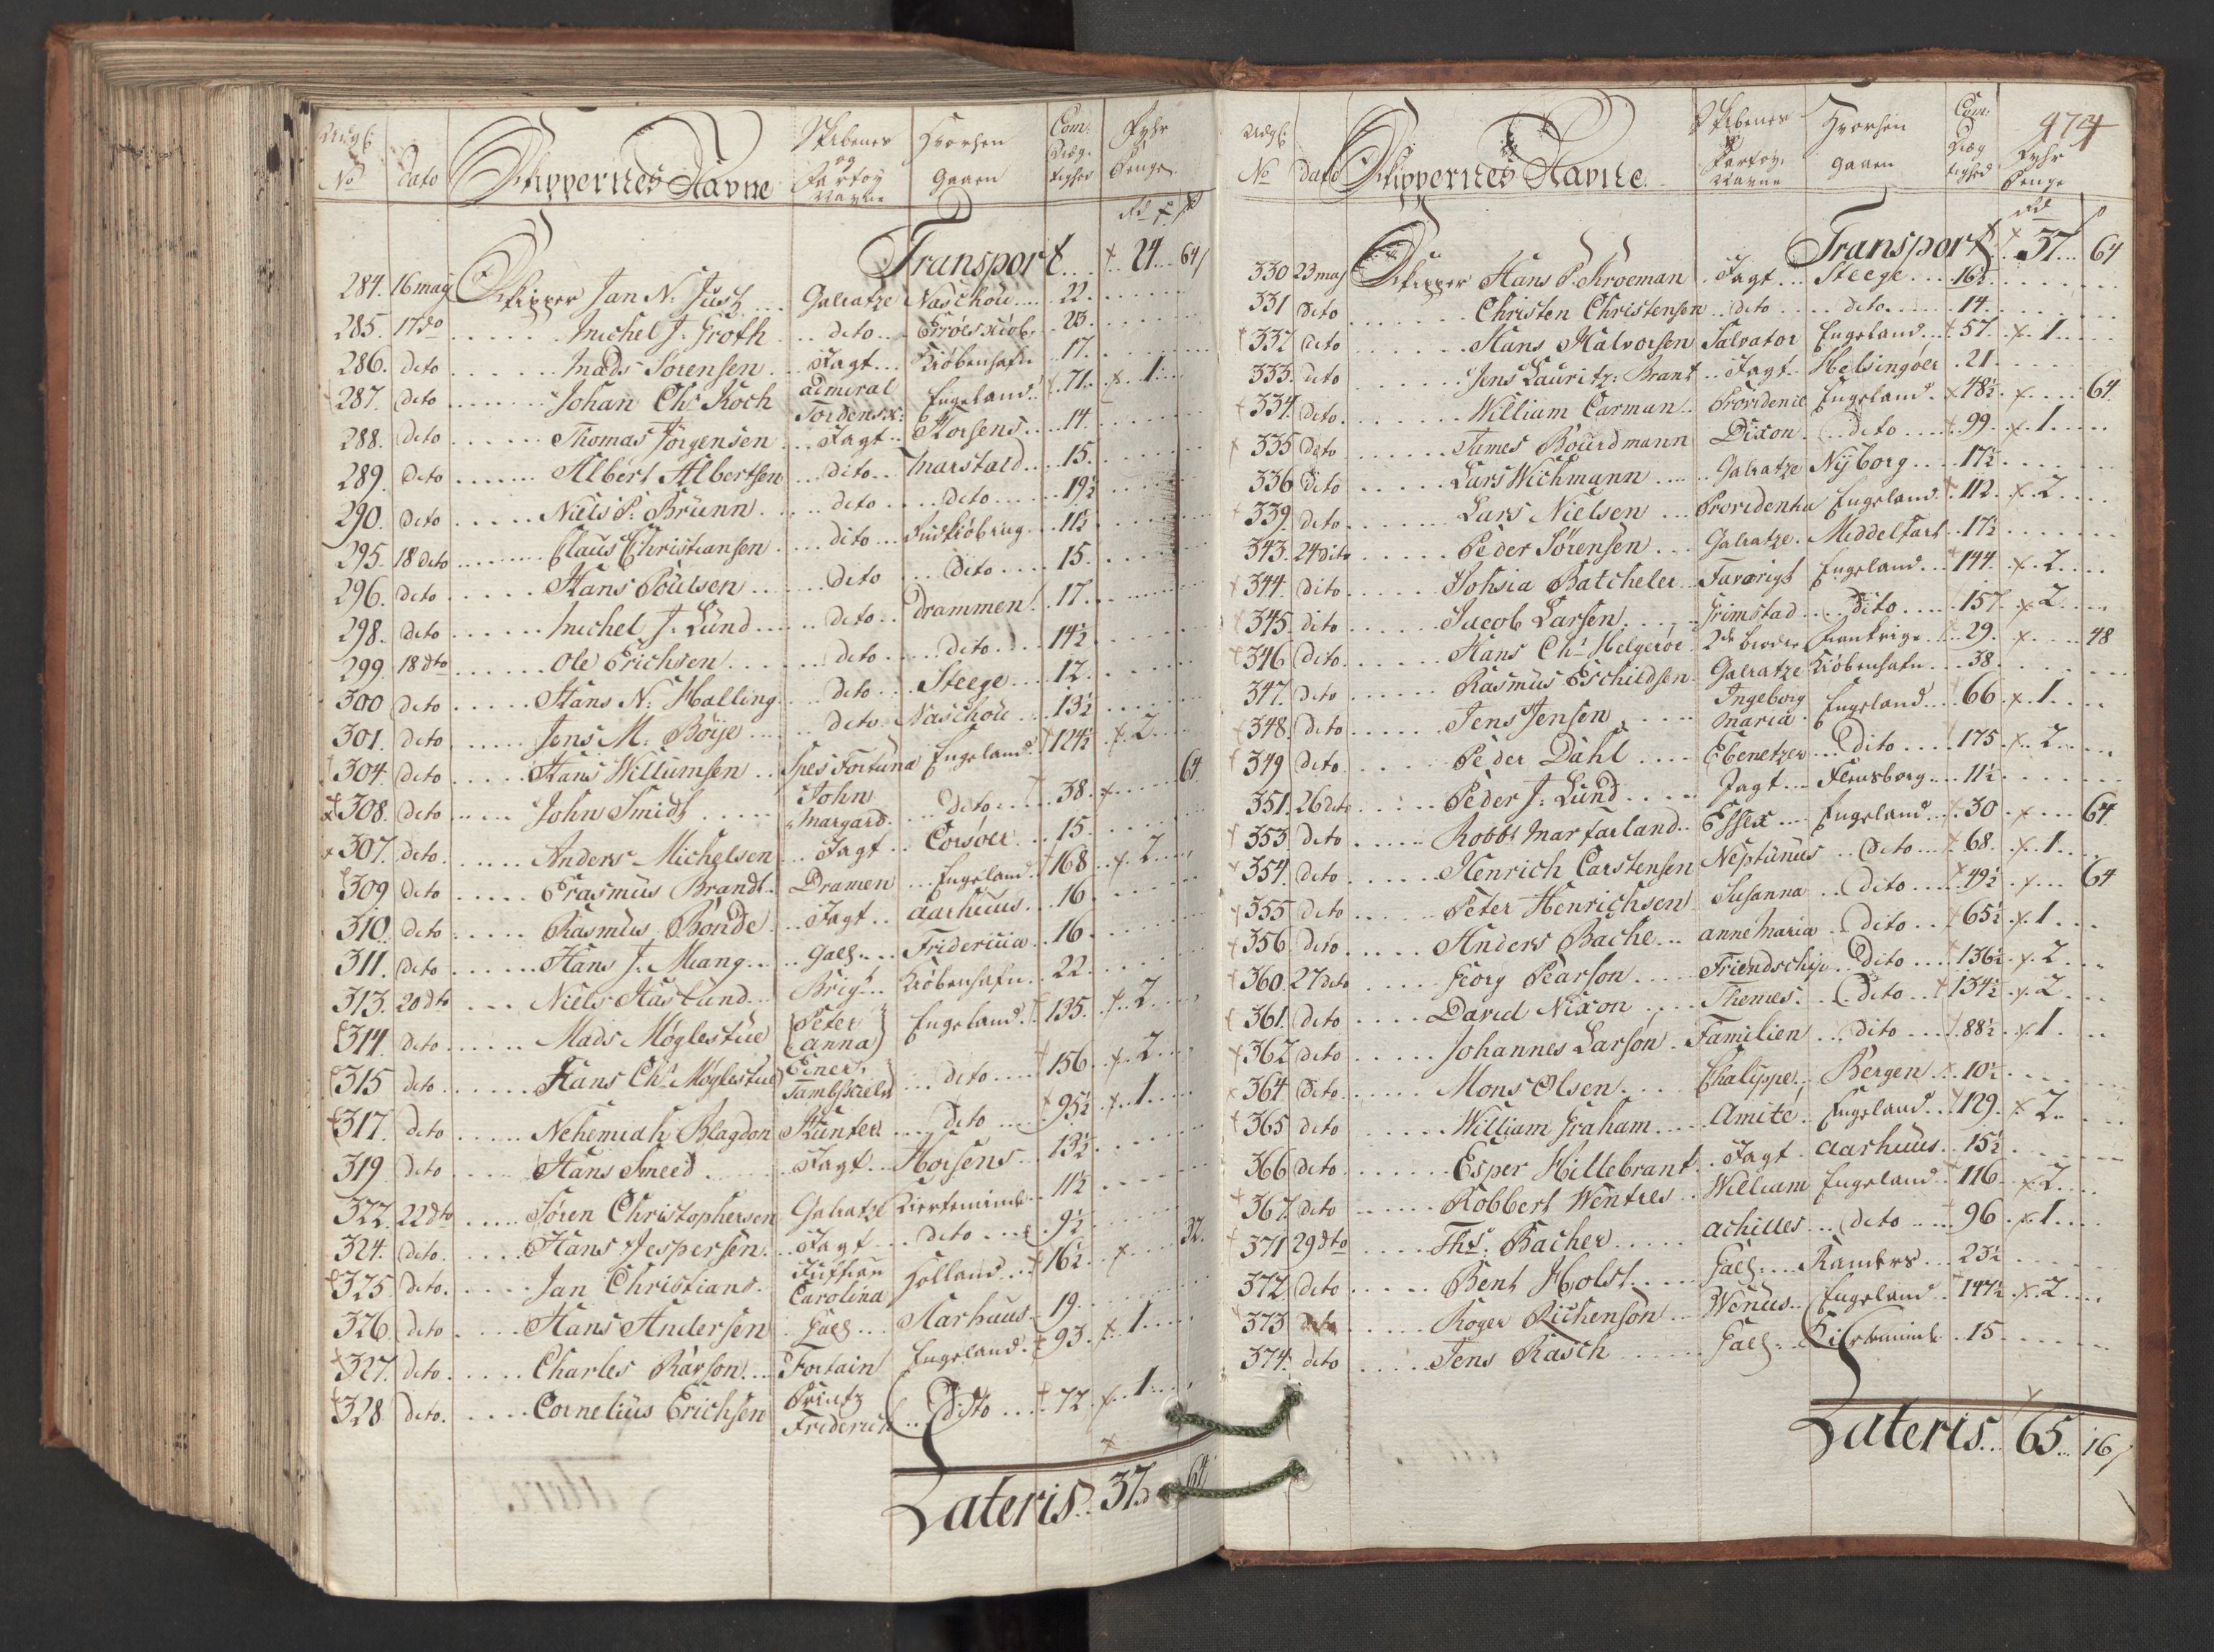 No
Dato
Skippernes Navne
Skibenes
og
Fartøy
Navne
Hvorhen
gaaen
Com:
Dræg-
tighed
Fyhr
Penge
Transport 24 64
284. 16 maÿ Skipper Jan N. Just Galeatze Naschou 22.
285. 17 do Michel J. Groth dito 23.
286. dito Mads Sørensen Jagt Kiøbenhafn 17.
287. dito Johan Chr Koch Admiral Tordensk: Engeland 71. 1
288. dito Thomas Jørgensen Jagt Horsens 14.
289. dito Albert Albertsen dito Marstald 15.
290. dito Niels P. Brünn dito dito 19½
295. 18 dito Claus Christiansen dito Rudkiøbing 11½
296. dito Hans Poulsen dito dito 15.
298. dito Michel J. Lund dito Drammen 17.
299. 18 dto Ole Erichsen dito dito 14½
300 dito Hans N. Halling dito Steege 12.
301. dito Jens M. Böÿe dito Naschou 13½
304. dito Hans Willumsen Spes Fortuna Engeland 124½ 2
308. dito John Smidt John Margard dito 38. 64
307. dito Anders Michelsen Jagt Corsøer 15.
309 dito Erasmus Brandt Dramen Engeland 168 2
310. dito Rasmus Bonde Jagt Aarhuus 16
311. dito Hans J. Mang Galj Fridericia 16.
313. 20 dto Niels Haslund Brigt Kiøbenhafn 22.
314. dito Mads Møglestue Peter Anna Engeland 135. 2
315 dito Hans Chr Møglestue Einer Tambskielv dito 156. 2
317. dito Nehemiah Blagdon Hunter dito 95½ 1
319 dito Hans Smeed Jagt Horsens 13½
322. 22 dto Søren Christophersen Galeatze Kierteminde 11½
324. dito Hans Jespersen Jagt dito 9½
325 dito. Jan Christians Carolina Holland 16½ 32.
326. dito Hans Andersen Galj Aarhuus 19.
327. dito Charles Rarson Fortain Engeland 93. 1
328 dito. Cornelius Erichsen Printz Friderich dito 72 1
Lateris 37. 64
474
No
Dato
Skippernes Navne
Skibenes
og
Fartøy
Navne
Hvorhen
gaaen
Com:
Dræg
tighed
Fyhr
Penge
Transport 37 64
330 23 maj Skipper Hans P. Throeman Jagt Steege 16½
331 dito Christen Christensen dito dito 14.
332 dito Hans Halvorsen Salvator Engeland 57. 1
333. dito Jens Lauritz: Brant Jagt Helsingøer 21.
334. dito. William Carman Providence Engeland 48½ 64.
335 dito James Bourdmann Dixon dito 99. 1
336 dito Lars Wichmann Galeatze Nÿborg 17½
339. dito Lars Nielsen Providentia Engeland 112. 2
343. 24 dito Peder Sørensen Galeatze Middelfart 17½
344. dito Johsia Batcheler Favorigt Engeland 144. 2
345. dito Jacob Larsen Grimstad dito 157. 2
346 dito Hans Chr Helgeröe 2de brødre Frankrige 29. 48
347. dito Rasmus Eschildsen Galeatze Kiøbenhafn 38.
348. dito Jens Jensen Ingeborg Maria Engeland 66. 1
349 dito Peder Dahl Ebenetzer dito 175 2
351. 26 dito Peder J. Lund Jagt Flensborg 11½
353. dito Robbt Marfarland Essex Engeland 30 64
354. dito Henrich Carstensen Neptunus dito 68. 1
355 dito Peter Henrichsen Susanna dito 49½ 64
356 dito Anders Bache Anne Maria dito 65½ 1
360. 27 dito Georg Pearson Friendschip dito 136½ 2
361. dito David Nixon Themes dito 134½ 2
362 dito Johannes Larson Familien dito 88½ 1
364 dito Mons Olsen Chalippe Bergen 10½
365 dito William Graham Amité Engeland 129. 2
366 dito Esper Hillebrant Jagt Aarhuus 15½
367. dito Robbert Wentres William Engeland 116 2
371 29 dto Ths. Bacher Achilles dito 96 1
372. dito Bent Holst Galj Randers 23½
373 dito Roger Richenson Wenus Engeland 147½ 2
374. dito Jens Rasch Galj Kierteminde 15
Lateris 65 16